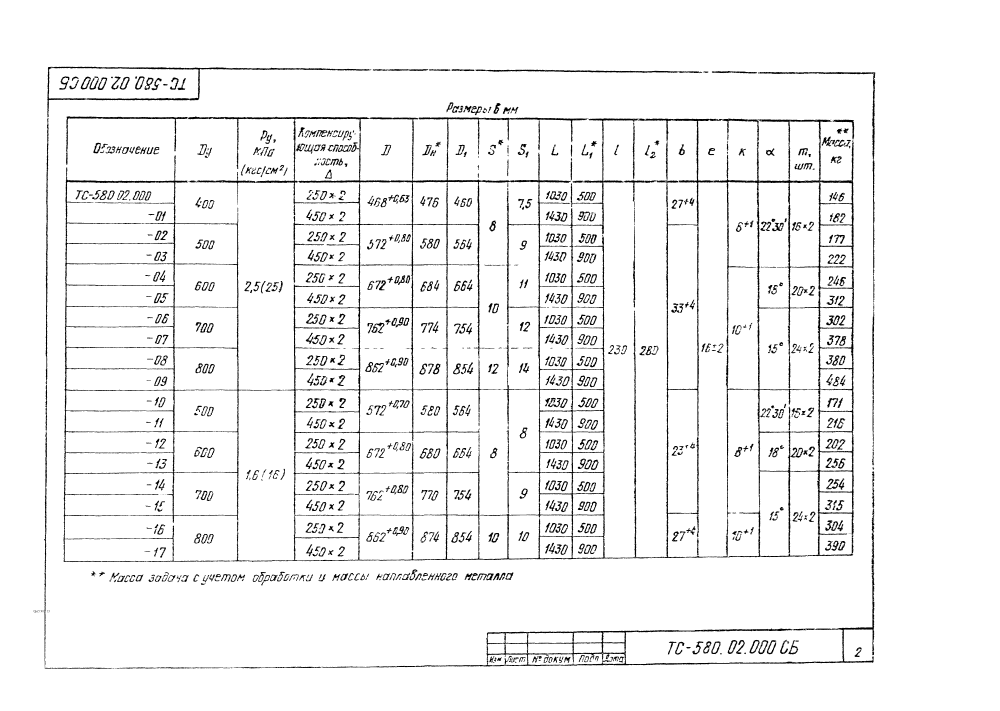 ТС-580.02.000СБ
Размеры в мм
Обозначение | Dy | Ру, кПа (кгс/см²) | Компенсирующая способность, Δ | D | Dн* | D₁ | S* | S₁ | L | L₁* | l | l₂* | b | e | к | α | m, шт. | Масса,** кг
ТС-580.02.000 | 400 | 2,5(25) | 250×2 | 468+0,63 | 476 | 460 | 8 | 7,5 | 1030 | 500 | 230 | 280 | 27+4 | 16±2 | 6+1 | 22°30' | 16×2 | 146
-01 | 450×2 | 1430 | 900 | 182
-02 | 500 | 250×2 | 572+0,80 | 580 | 564 | 9 | 1030 | 500 | 33+4 | 177
-03 | 450×2 | 1430 | 900 | 222
-04 | 600 | 250×2 | 672+0,80 | 684 | 664 | 10 | 11 | 1030 | 500 | 10+1 | 18° | 20×2 | 246
-05 | 450×2 | 1430 | 900 | 312
-06 | 700 | 250×2 | 762+0,90 | 774 | 754 | 12 | 1030 | 500 | 15° | 24×2 | 302
-07 | 450×2 | 1430 | 900 | 378
-08 | 800 | 250×2 | 862+0,90 | 878 | 854 | 12 | 14 | 1030 | 500 | 380
-09 | 450×2 | 1430 | 900 | 484
-10 | 500 | 1,6(16) | 250×2 | 572+0,70 | 580 | 564 | 8 | 8 | 1030 | 500 | 23+4 | 8+1 | 22°30' | 16×2 | 171
-11 | 450×2 | 1430 | 900 | 216
-12 | 600 | 250×2 | 672+0,80 | 680 | 664 | 1030 | 500 | 18° | 20×2 | 202
-13 | 450×2 | 1430 | 900 | 256
-14 | 700 | 250×2 | 762+0,80 | 770 | 754 | 9 | 1030 | 500 | 15° | 24×2 | 254
-15 | 450×2 | 1430 | 900 | 315
-16 | 800 | 250×2 | 862+0,90 | 874 | 854 | 10 | 10 | 1030 | 500 | 27+4 | 10+1 | 304
-17 | 450×2 | 1430 | 900 | 390
** Масса задача с учетом обработки и массы наплавленного металла
Изм Лист № докум Подп Дата
ТС-580.02.000 СБ
2